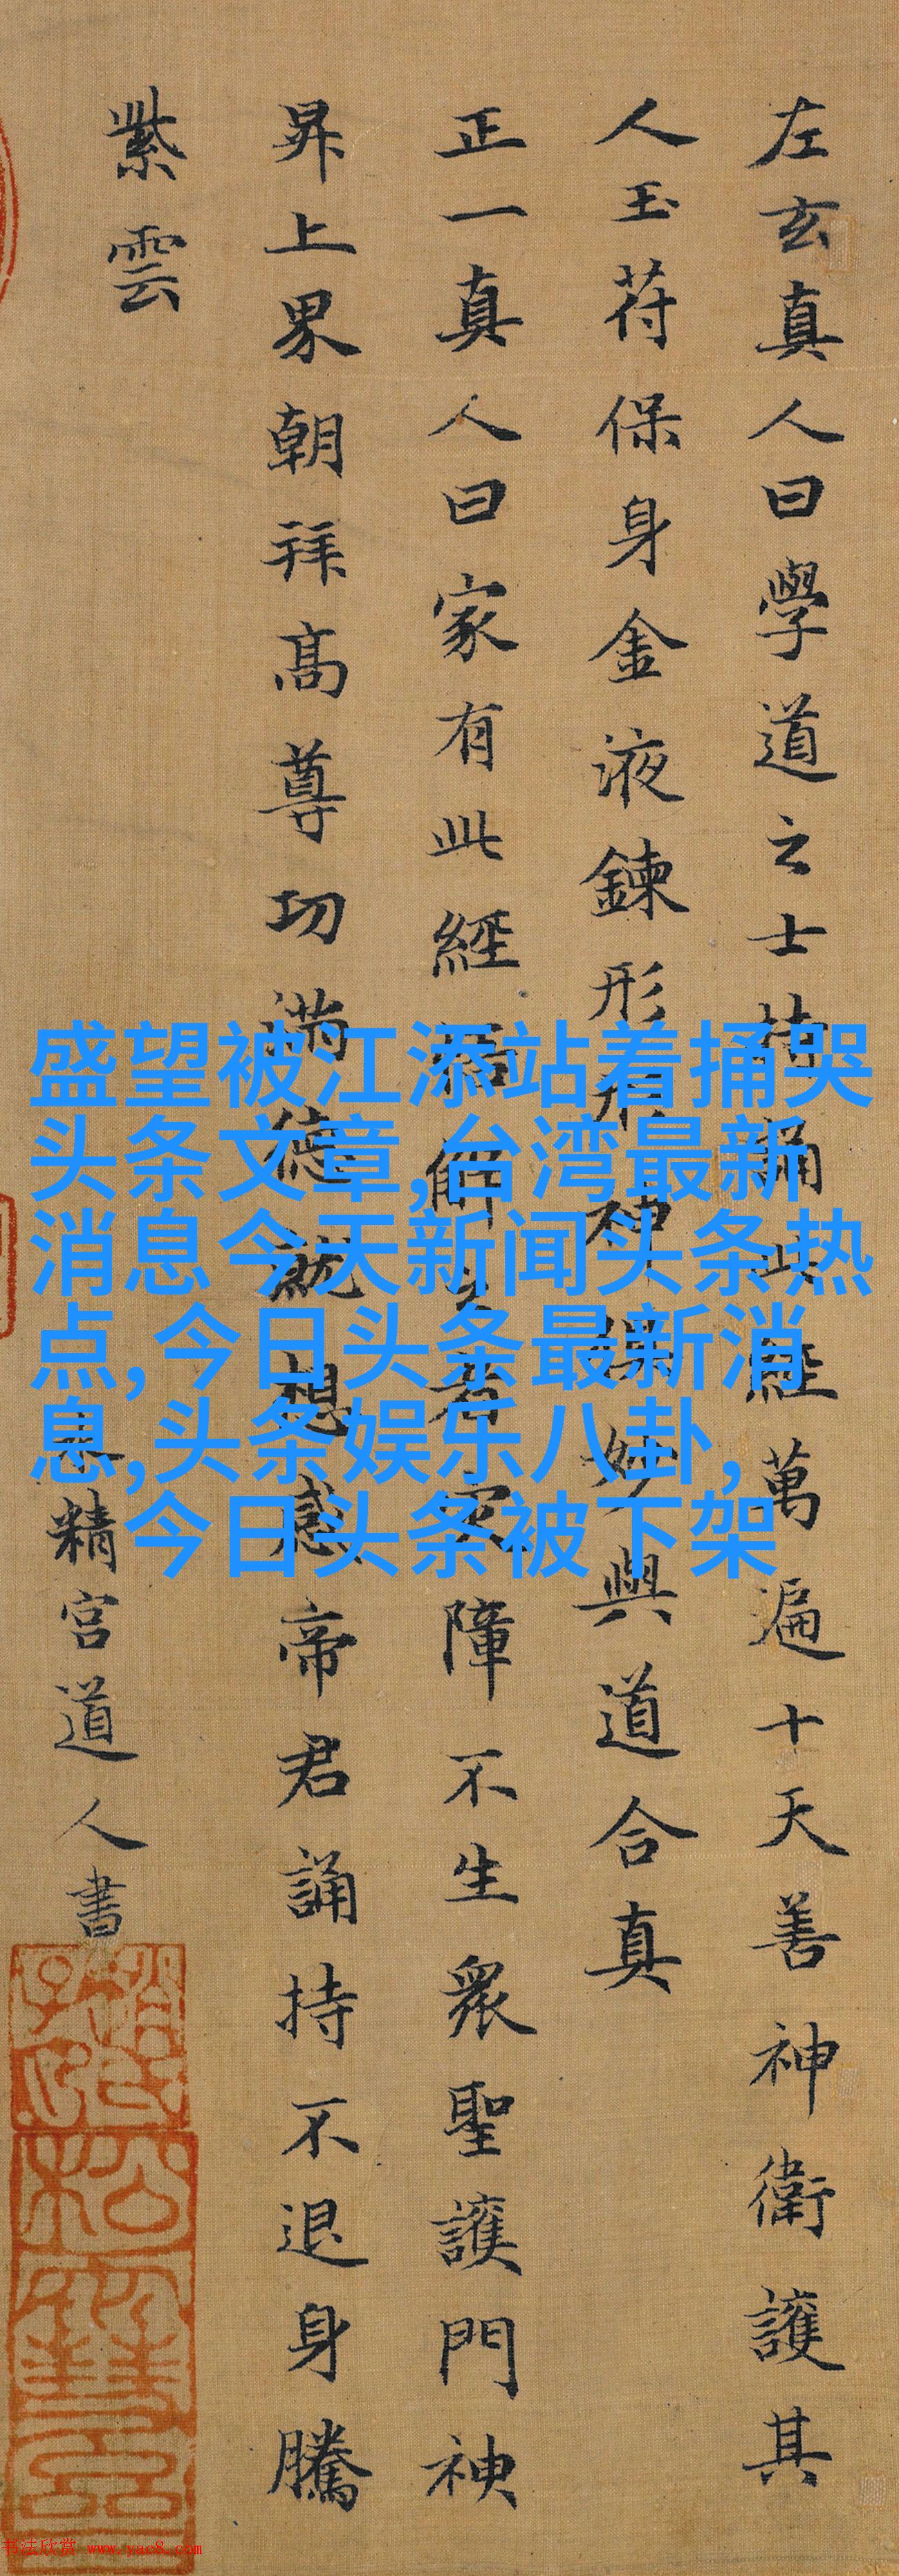 左玄真人曰學道之士持誦此經萬遍十天善神衛護其
人玉苻保身金液鍊形形神俱妙與道合真
正一真人曰家有此經悟解之者灾障不生衆聖護門神
昇上界朝拜高尊功滿德就想感帝君誦持不退身騰
紫雲
水精宮道人書
盛望被江添站着捅哭
头条文章,台湾最新
消息今天新闻头条热
点,今日头条最新消
息,头条娱乐八卦,
今日头条被下架
书法欣赏 www.yac8.com